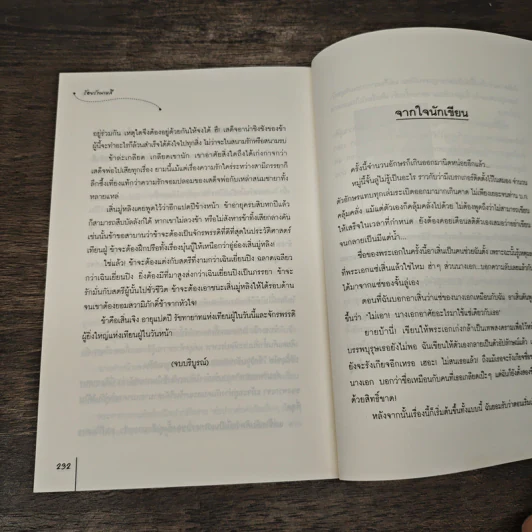 อยู่ร่วมกัน เหตุใดจึงต้องอยู่ด้วยกันให้จงได้ ฮึ! เสด็จอาน่าชิงชังของข้า
ผู้นี้จะทำอะไรก็ล้วนสำเร็จได้ดังใจไปทุกสิ่ง ไม่ว่าจะในสนามรักหรือสนามรบ
ข้าละเกลียด เกลียดเขานัก เขาอาศัยสิ่งใดถึงได้เก่งกาจกว่า
เสด็จพ่อไปเสียทุกเรื่อง ยามนี้แม้แต่เรื่องความรักใคร่ระหว่างสามีภรรยาก็
ลึกซึ้งเพียงแท้กว่าความรักจอมปลอมของเสด็จพ่อกับเหล่าสนมชายาทั้ง
หลายแหล่
เสิ่นมู่หลิงเคยพูดไว้ว่าอีกแปดปีข้างหน้า ข้าอายุครบสิบหกปีแล้ว
ก็สามารถสืบบัลลังก์ได้ หากเขาไม่ลวงข้า หรือไม่สังหารข้าทิ้งเสียกลางคัน
เช่นนั้นข้าขอสาบานว่าข้าจะต้องเป็นจักรพรรดิที่ดีที่สุดในประวัติศาสตร์
เทียนผู่ ข้าจะต้องฝึกปรือทั้งเรื่องบุ๋นบู๊ให้เหนือกว่าอู่อ๋องเสิ่นมู่หลิง!
ใช่แล้ว! ข้าจะต้องแต่งกับสตรีที่งามกว่าเฉินเยี่ยนปิง ฉลาดเฉลียว
กว่าเฉินเยี่ยนปิง ยิ่งต้องมีที่มาสูงส่งกว่าเฉินเยี่ยนปิงเป็นภรรยา ข้าจะ
รักมั่นกับสตรีผู้นั้นไปชั่วชีวิต ข้าจะต้องเอาชนะเสิ่นมู่หลิงให้ได้รอบด้าน
จนเขาต้องยอมสวามิภักดิ์ข้าจากหัวใจ!
ข้าคือเสิ่นเจิง อายุแปดปี รัชทายาทแห่งเทียนผู่ในวันนี้และจักรพรรดิ
ผู้ยิ่งใหญ่แห่งเทียนผู่ในวันหน้า
(จบบริบูรณ์)
292
จากใจนักเขียน
ครั้งนี้จำนวนอักษรก็เกินออกมานิดหน่อยอีกแล้ว...
หมู่นี้จั้นลู่ไม่รู้เป็นอะไร ราวกับว่ามีเบรกตัวอักษรติดตั้งไว้ในสมอง จำนวน
ตัวอักษรแทบทุกเล่มระเบิดออกมามากเกินคาด ไม่เพียงเธอจะด่าน
คลุ้มคลั่ง แม้แต่ตัวเองก็คลุ้มคลั่งไปด้วย ไม่ต้องพูดถึงว่าไม่สามารถเขียน
ให้เสร็จในเวลาที่กำหนด ยังต้องคอยเตือนสติตัวเองเสมอว่าอย่าเขียน
จนกลายเป็นมีแต่น้ำ...
ชื่อของพระเอกในครั้งนี้อาเสิ่นเป็นคนช่วยฉันตั้ง เพราะฉะนั้น
ที่พระเอกแซ่เสิ่นแล้วใช่ไหม ฮ่าๆ ส่วนนางเอก...บอกความลับ
ได้มาจากแซ่ของจั้นลู่เอง
ตอนที่ฉันบอกอาเสิ่นว่าแซ่ของนางเอกเหมือนกับฉัน อาเสิ่น
ขึ้นว่า 'ไม่เอา! นางเอกอาศัยอะไรมาใช้แซ่เดียวกับเธอ!'
ยายบ้านี่! เขียนให้พระเอกเก่งกล้าเป็นเทพสงคราม
บรรพบุรุษเธอยังไม่พอ ฉันเขียนให้ตัวเองกลายเป็นตัวอัปลักษณ์แล้ว
ยังจะรังเกียจอีกเหรอ เฮอะ! ไม่สนเธอแล้ว!
นางเอก บอกว่าชื่อเหมือนกับคนที่เธอเกลียดเป๊ะๆ
ด้วยสิทธิ์ขาด!
หลังจากนั้นเรื่องนี้ก็เริ่มต้นขึ้นทั้งแบบนี้ ฉันยอมรับว่า